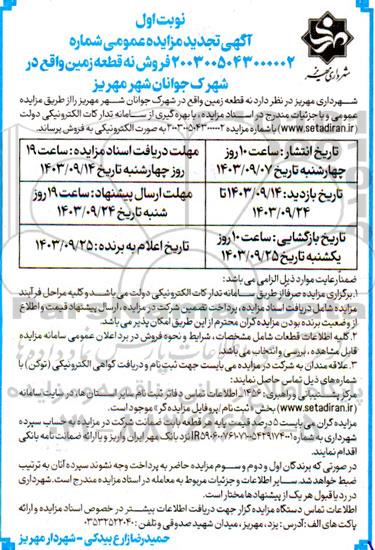 نوبت اول
آگهی تجدید مزایده عمومی شماره
۲۰۰۳۰۰۵۰۴۳۰۰۰۰۰۲ فروش نه قطعه زمین واقع در
شهرک جوانان شهر مهریز
شهرداری مهریز
شهرداری مهریز در نظر دارد نه قطعه زمین واقع در شهرک جوانان شهر مهریز را از طریق مزایده
عمومی و با جزئیات مندرج در اسناد مزایده، با بهره گیری از سامانه تدارکات الکترونیکی دولت
(www.setadiran.ir) با شماره مزایده ۲۰۰۳۰۰۵۰۴۳۰۰۰۰۰۲ به صورت الکترونیکی به فروش برساند.
تاریخ انتشار: ساعت ۱۰ روز
چهارشنبه تاریخ ۱۴۰۳/۰۹/۰۷
مهلت دریافت اسناد مزایده: ساعت ۱۹
روز چهارشنبه تاریخ ۱۴۰۳/۰۹/۱۴
تاریخ بازدید: ۱۴۰۳/۰۹/۱۴ تا
۱۴۰۳/۰۹/۲۴
مهلت ارسال پیشنهاد: ساعت ۱۹ روز
شنبه تاریخ ۱۴۰۳/۰۹/۲۴
تاریخ بازگشایی: ساعت ۱۰ روز
یکشنبه تاریخ ۱۴۰۳/۰۹/۲۵
تاریخ اعلام به برنده: ۱۴۰۳/۰۹/۲۵
ضمنا رعایت موارد ذیل الزامی می باشد:
۱. برگزاری مزایده صرفا از طریق سامانه تدارکات الکترونیکی دولت می باشد و کلیه مراحل فرآیند
مزایده شامل دریافت اسناد مزایده، پرداخت تضمین شرکت در مزایده، ارسال پیشنهاد قیمت و اطلاع
از وضعیت برنده بودن مزایده گران محترم از این طریق امکان پذیر می باشد.
۲. کلیه اطلاعات قطعات شامل مشخصات، شرایط و نحوه فروش در برد اعلان عمومی سامانه مزایده
قابل مشاهده، بررسی و انتخاب می باشد.
۳. علاقه مندان به شرکت در مزایده می بایست جهت ثبت نام و دریافت گواهی الکترونیکی (توکن) با
شماره های ذیل تماس حاصل نمایند:
مرکز پشتیبانی و راهبری: ۱۴۵۶ اطلاعات تماس دفاتر ثبت نام سایر استان ها، در سایت سامانه
(www.setadiran.ir) بخش «ثبت نام/پروفایل مزایده گر» موجود است.
مزایده گران می بایست ۵ درصد قیمت پایه هر قطعه بابت ضمانت شرکت در مزایده به حساب سپرده
نزد بانک مهر ایران واریز و یا ارائه ضمانت نامه بانکی
اقدام نمایند.
در صورتی که برندگان اول و دوم و سوم مزایده حاضر به پرداخت وجه نشوند سپرده آنان به ترتیب
ضبط خواهد شد. سایر اطلاعات و جزئیات مربوط به معامله در اسناد مزایده مندرج است. شهرداری
در رد یا قبول هر یک از پیشنهادها مختار است.
اطلاعات تماس دستگاه مزایده گزار جهت دریافت اطلاعات بیشتر در خصوص اسناد مزایده و ارائه
پاکت های الف: آدرس: یزد، مهریز، میدان شهید صدوقی و تلفن: ۰۳۵۳۲۵۲۲۰۴۰
حمیدرضا زارع بیدکی - شهردار مهریز